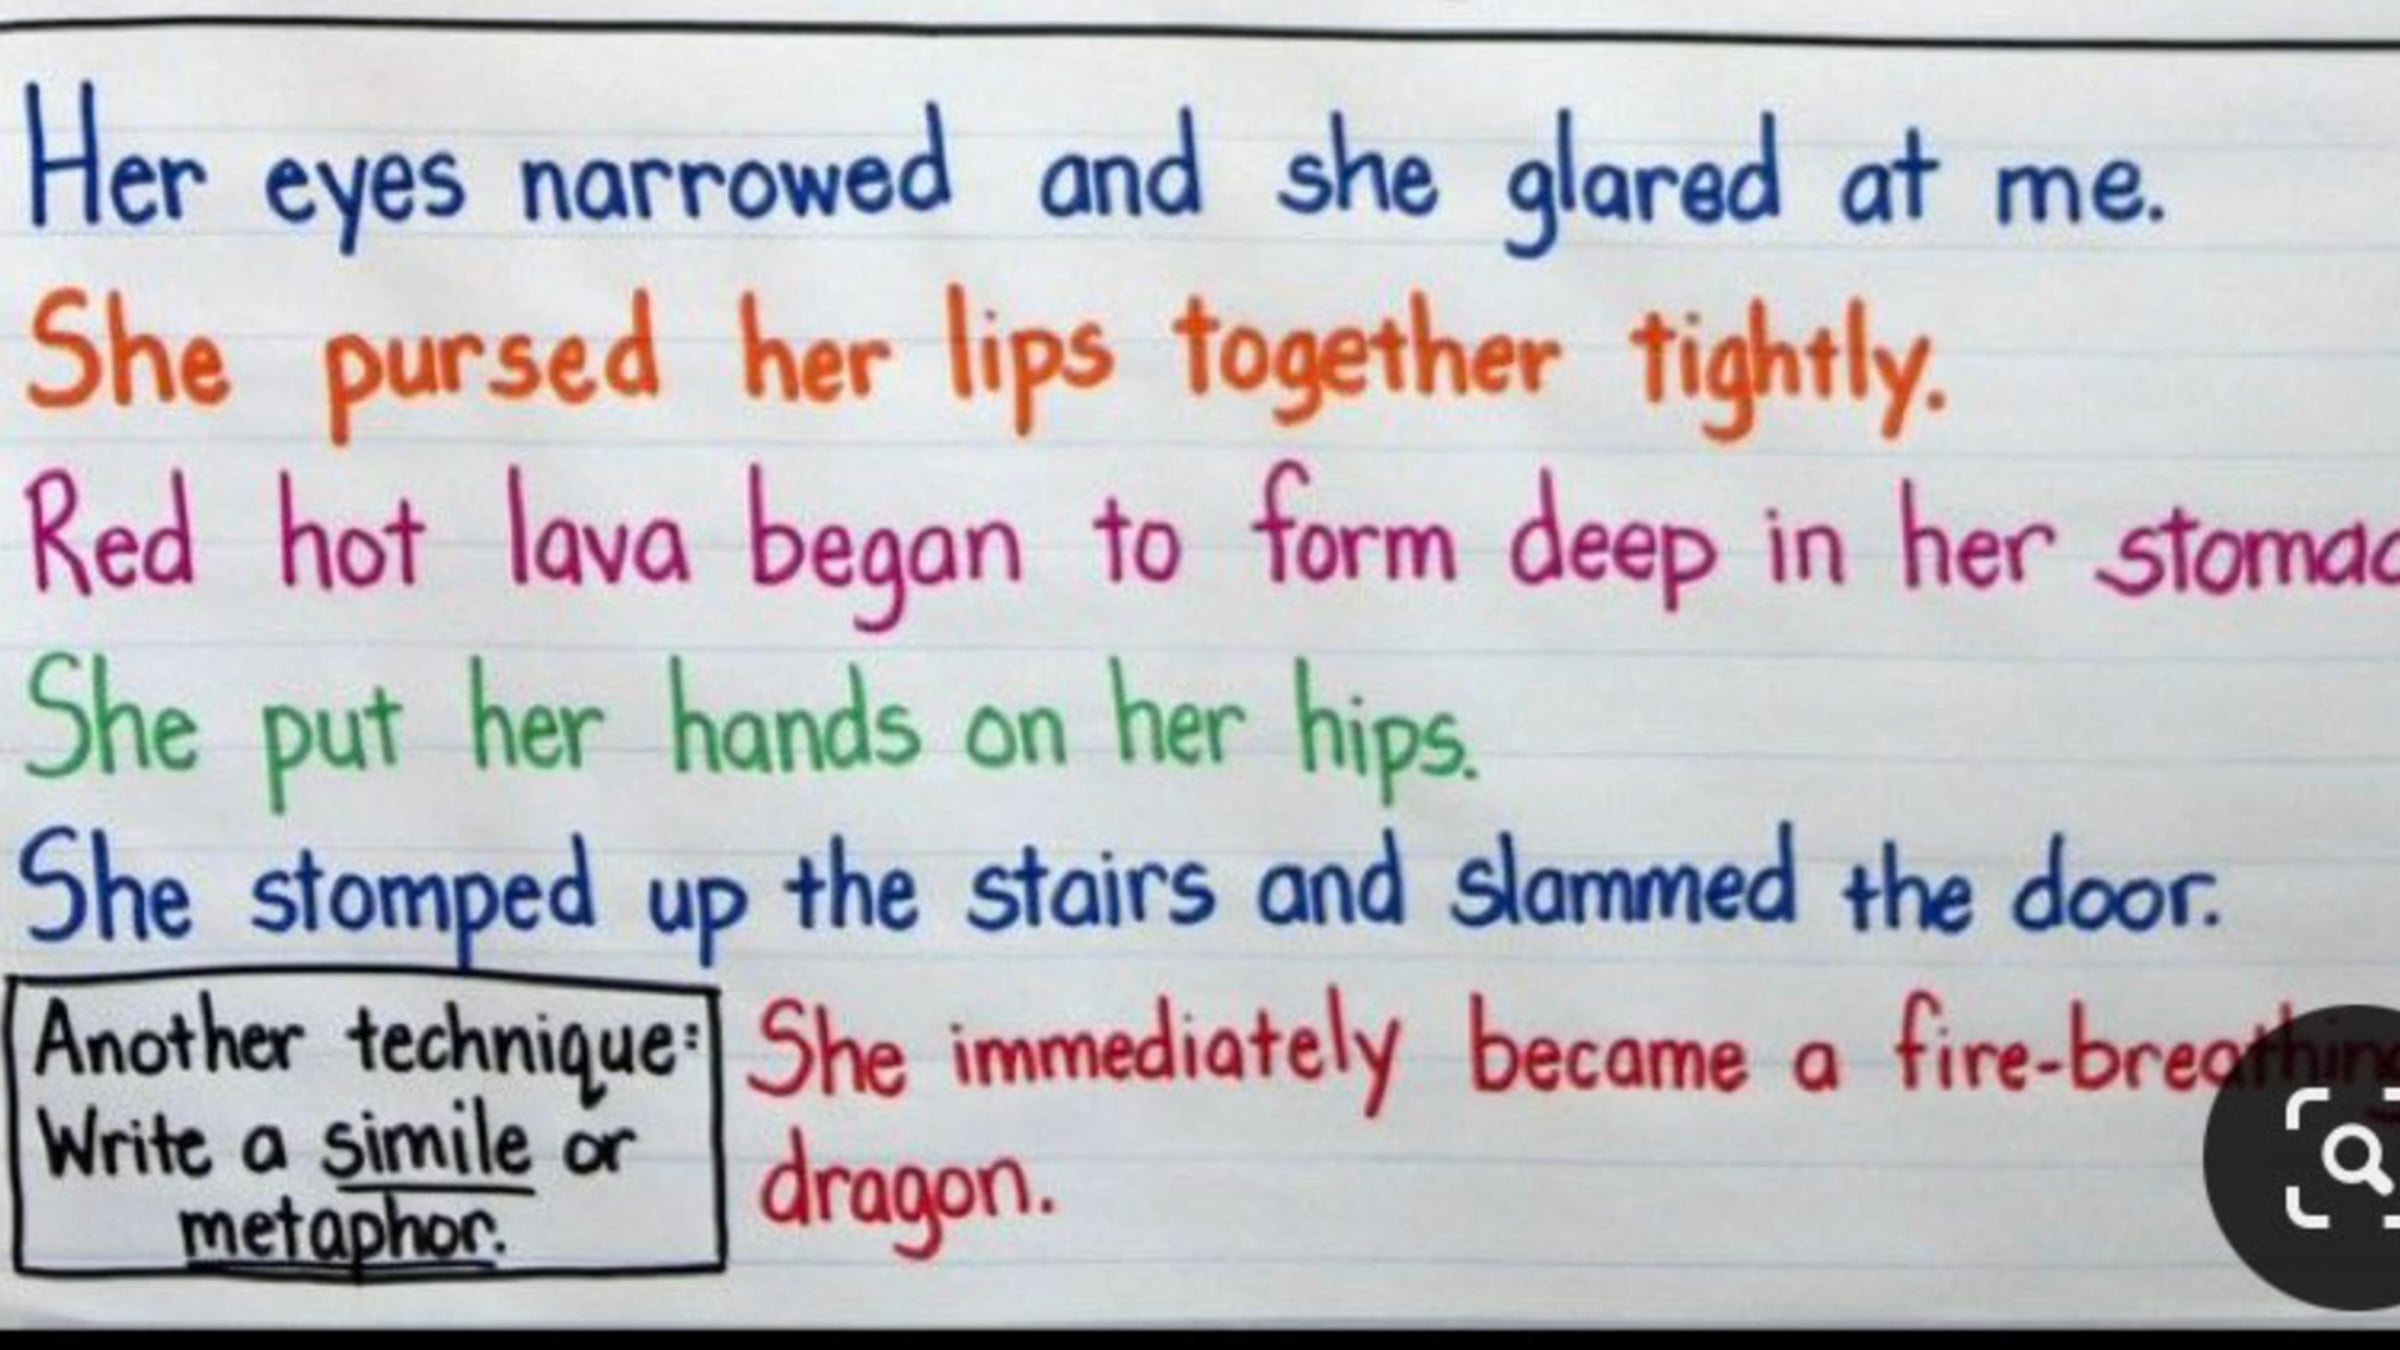 Her eyes narrowed and she glared at me.
She pursed her lips together tightly.
Red hot lava began to form deep in her stomac
She put her hands on her hips.
She stomped up the stairs and slammed the door.
Another technique:
Write a simile or
metaphor.
She immediately became a fire-breathing
dragon.